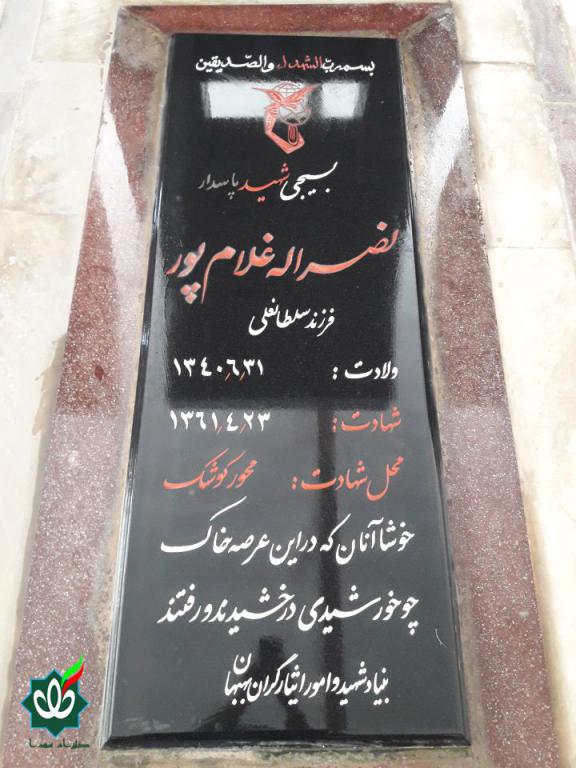 بسم رب الشهداء والصدیقین
بسیجی شهید پاسدار
نصراله غلام پور
فرزند سلطانعلی
ولادت : ۱۳۴۰٫۶٫۳۱
شهادت : ۱۳۶۱٫۴٫۲۳
محل شهادت : محور کوشک
خوشا آنان که در این عرصه خاک
چو خورشیدی درخشیدند و رفتند
بنیاد شهید و امور ایثارگران بهبهان